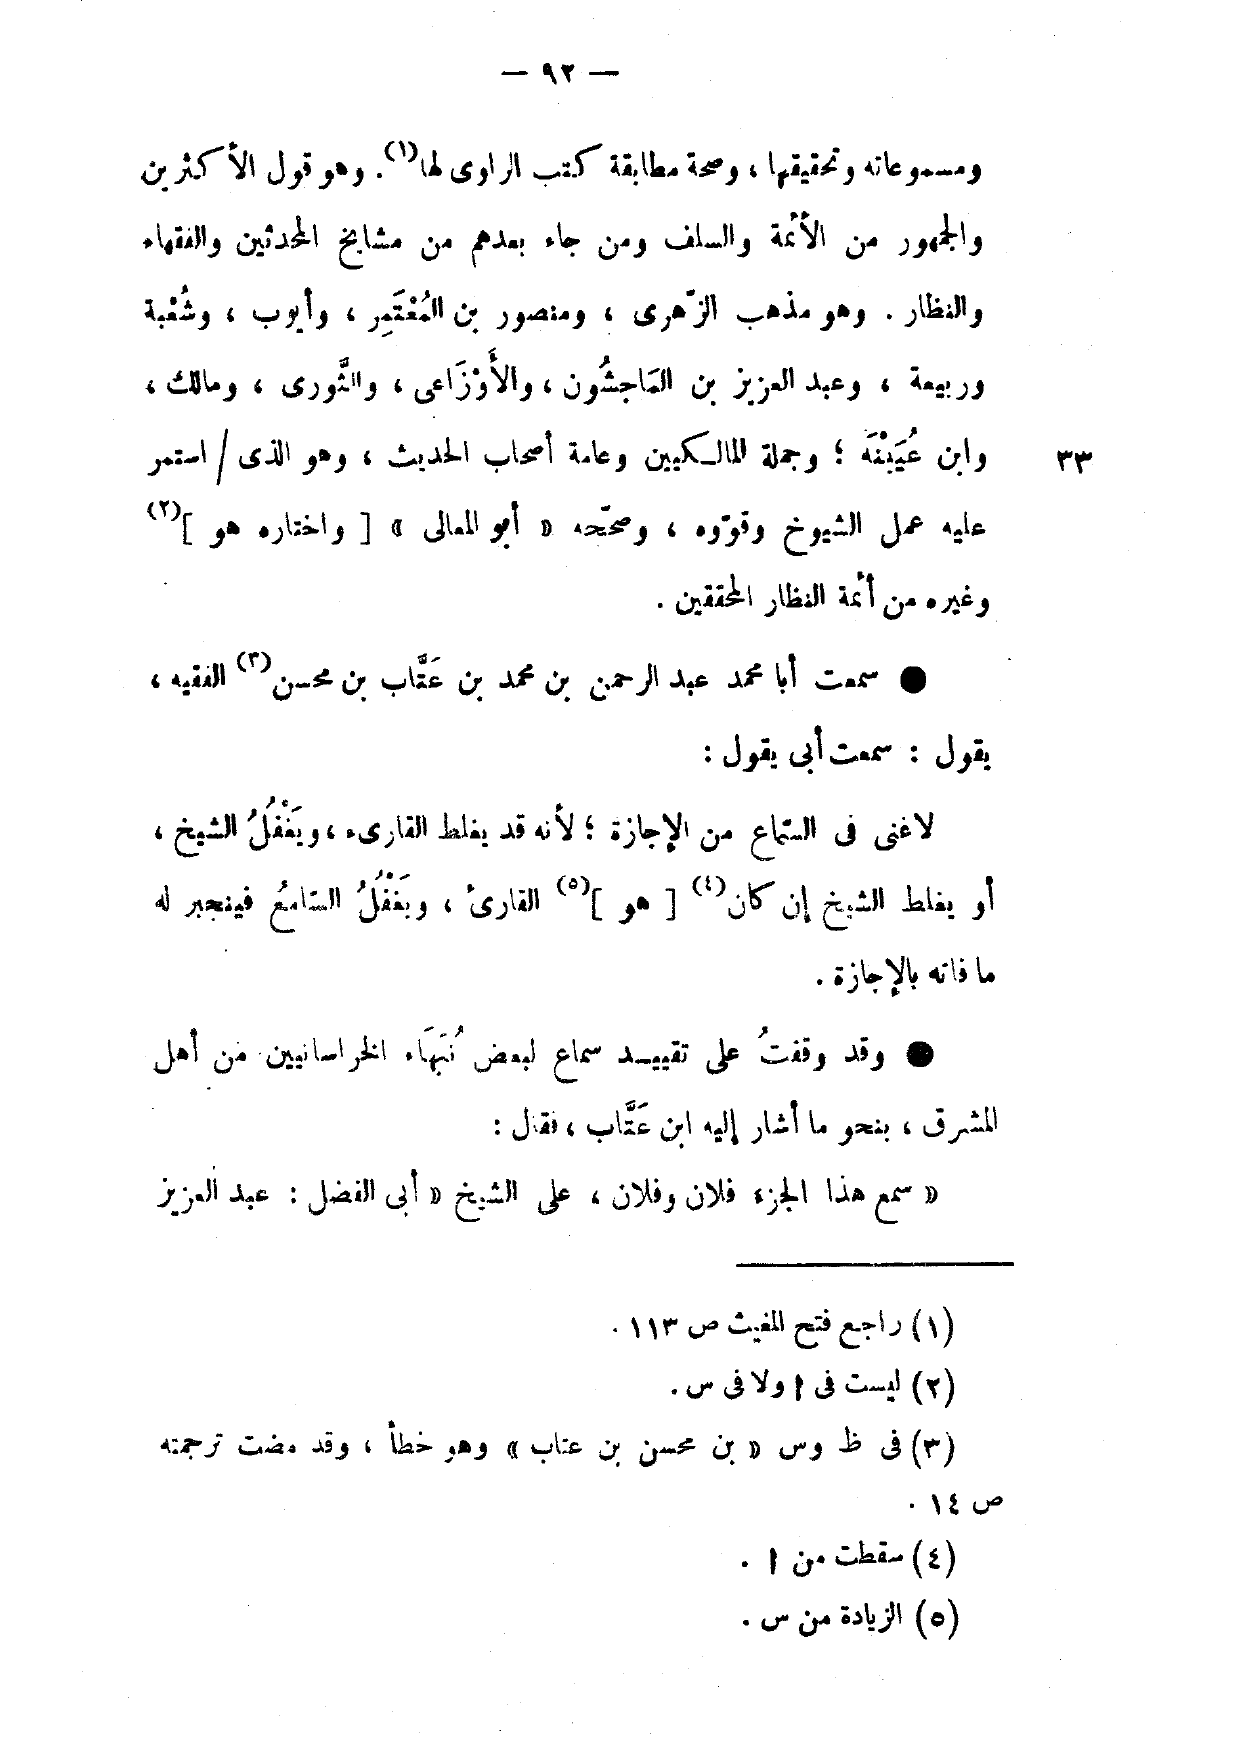 — ٩٢ —
ومسموعاته وتحقيقها ، وصحة مطابقة كتب الراوى لها(١). وهو قول الأكثرين
والجمهور من الأئمة والسلف ومن جاء بعدهم من مشايخ المحدثين والفقهاء
والنظار . وهو مذهب الزّهرى ، ومنصور بن المُعْتَمِر ، وأيوب ، وشُعْبة
وربيعة ، وعبد العزيز بن المَاجشُون ، والأَوْزَاعى ، والثَّورى ، ومالك ،
وابن عُيَيْنَة ؛ وجملة المالكيين وعامة أصحاب الحديث ، وهو الذى / استمر ٣٣
عليه عمل الشيوخ وقوّوه ، وصحّحه « أبو المعالى » [ واختاره هو ](٢)
وغيره من أئمة النظار المحققين .
● سمعت أبا محمد عبد الرحمن بن محمد بن عَتَّاب بن محسن(٣) الفقيه ،
يقول : سمعت أبى يقول :
لاغنى فى السّماع من الإجازة ؛ لأنه قد يغلط القارىء ، ويَغْفُلُ الشيخ ،
أو يغلط الشيخ إن كان(٤) [ هو ](٥) القارئ ، ويَغْفُلُ السّامعُ فينجبر له
ما فاته بالإجازة .
● وقد وقفتُ على تقييد سماع لبعض نُبَهَاء الخراسانيين من أهل
المشرق ، بنحو ما أشار إليه ابن عَتَّاب ، فقال :
« سمع هذا الجزء فلان وفلان ، على الشيخ « أبى الفضل : عبد العزيز
(١) راجع فتح المغيث ص ١١٣ .
(٢) ليست فى ا ولا فى س .
(٣) فى ظ وس « بن محسن بن عتاب » وهو خطأ ، وقد مضت ترجمته
ص ١٤ .
(٤) سقطت من ا .
(٥) الزيادة من س .